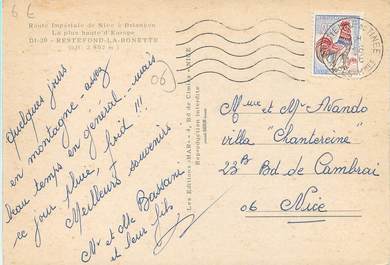 6 €
Route Impériale de Nice à Briançon
La plus haute d'Europe
DI-29 - RESTEFOND-LA-BONETTE
(alt. 2 802 m)
06
Quelques jours
en montagne - avec
beau temps en général - mais
ce jour pluie, froid !!!
Meilleurs souvenirs.
Mr et Me Bassani
et leur fils
Les Editions «MAR» - 4, Bd de Cimiez - NICE
Reproduction interdite
Mme et Mr Nando
villa "Chantereine"
23 Bd de Cambrai
06 Nice